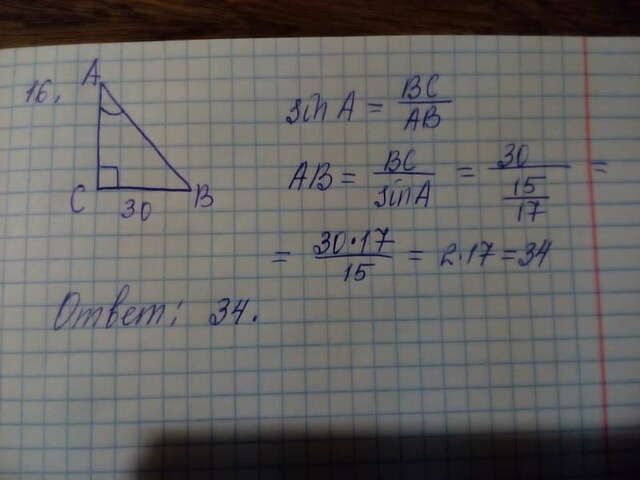 16.
A
C
30
B
sin A = BC/AB
AB = BC/sin A = 30/(15/17) =
= 30·17/15 = 2·17 = 34
Ответ: 34.